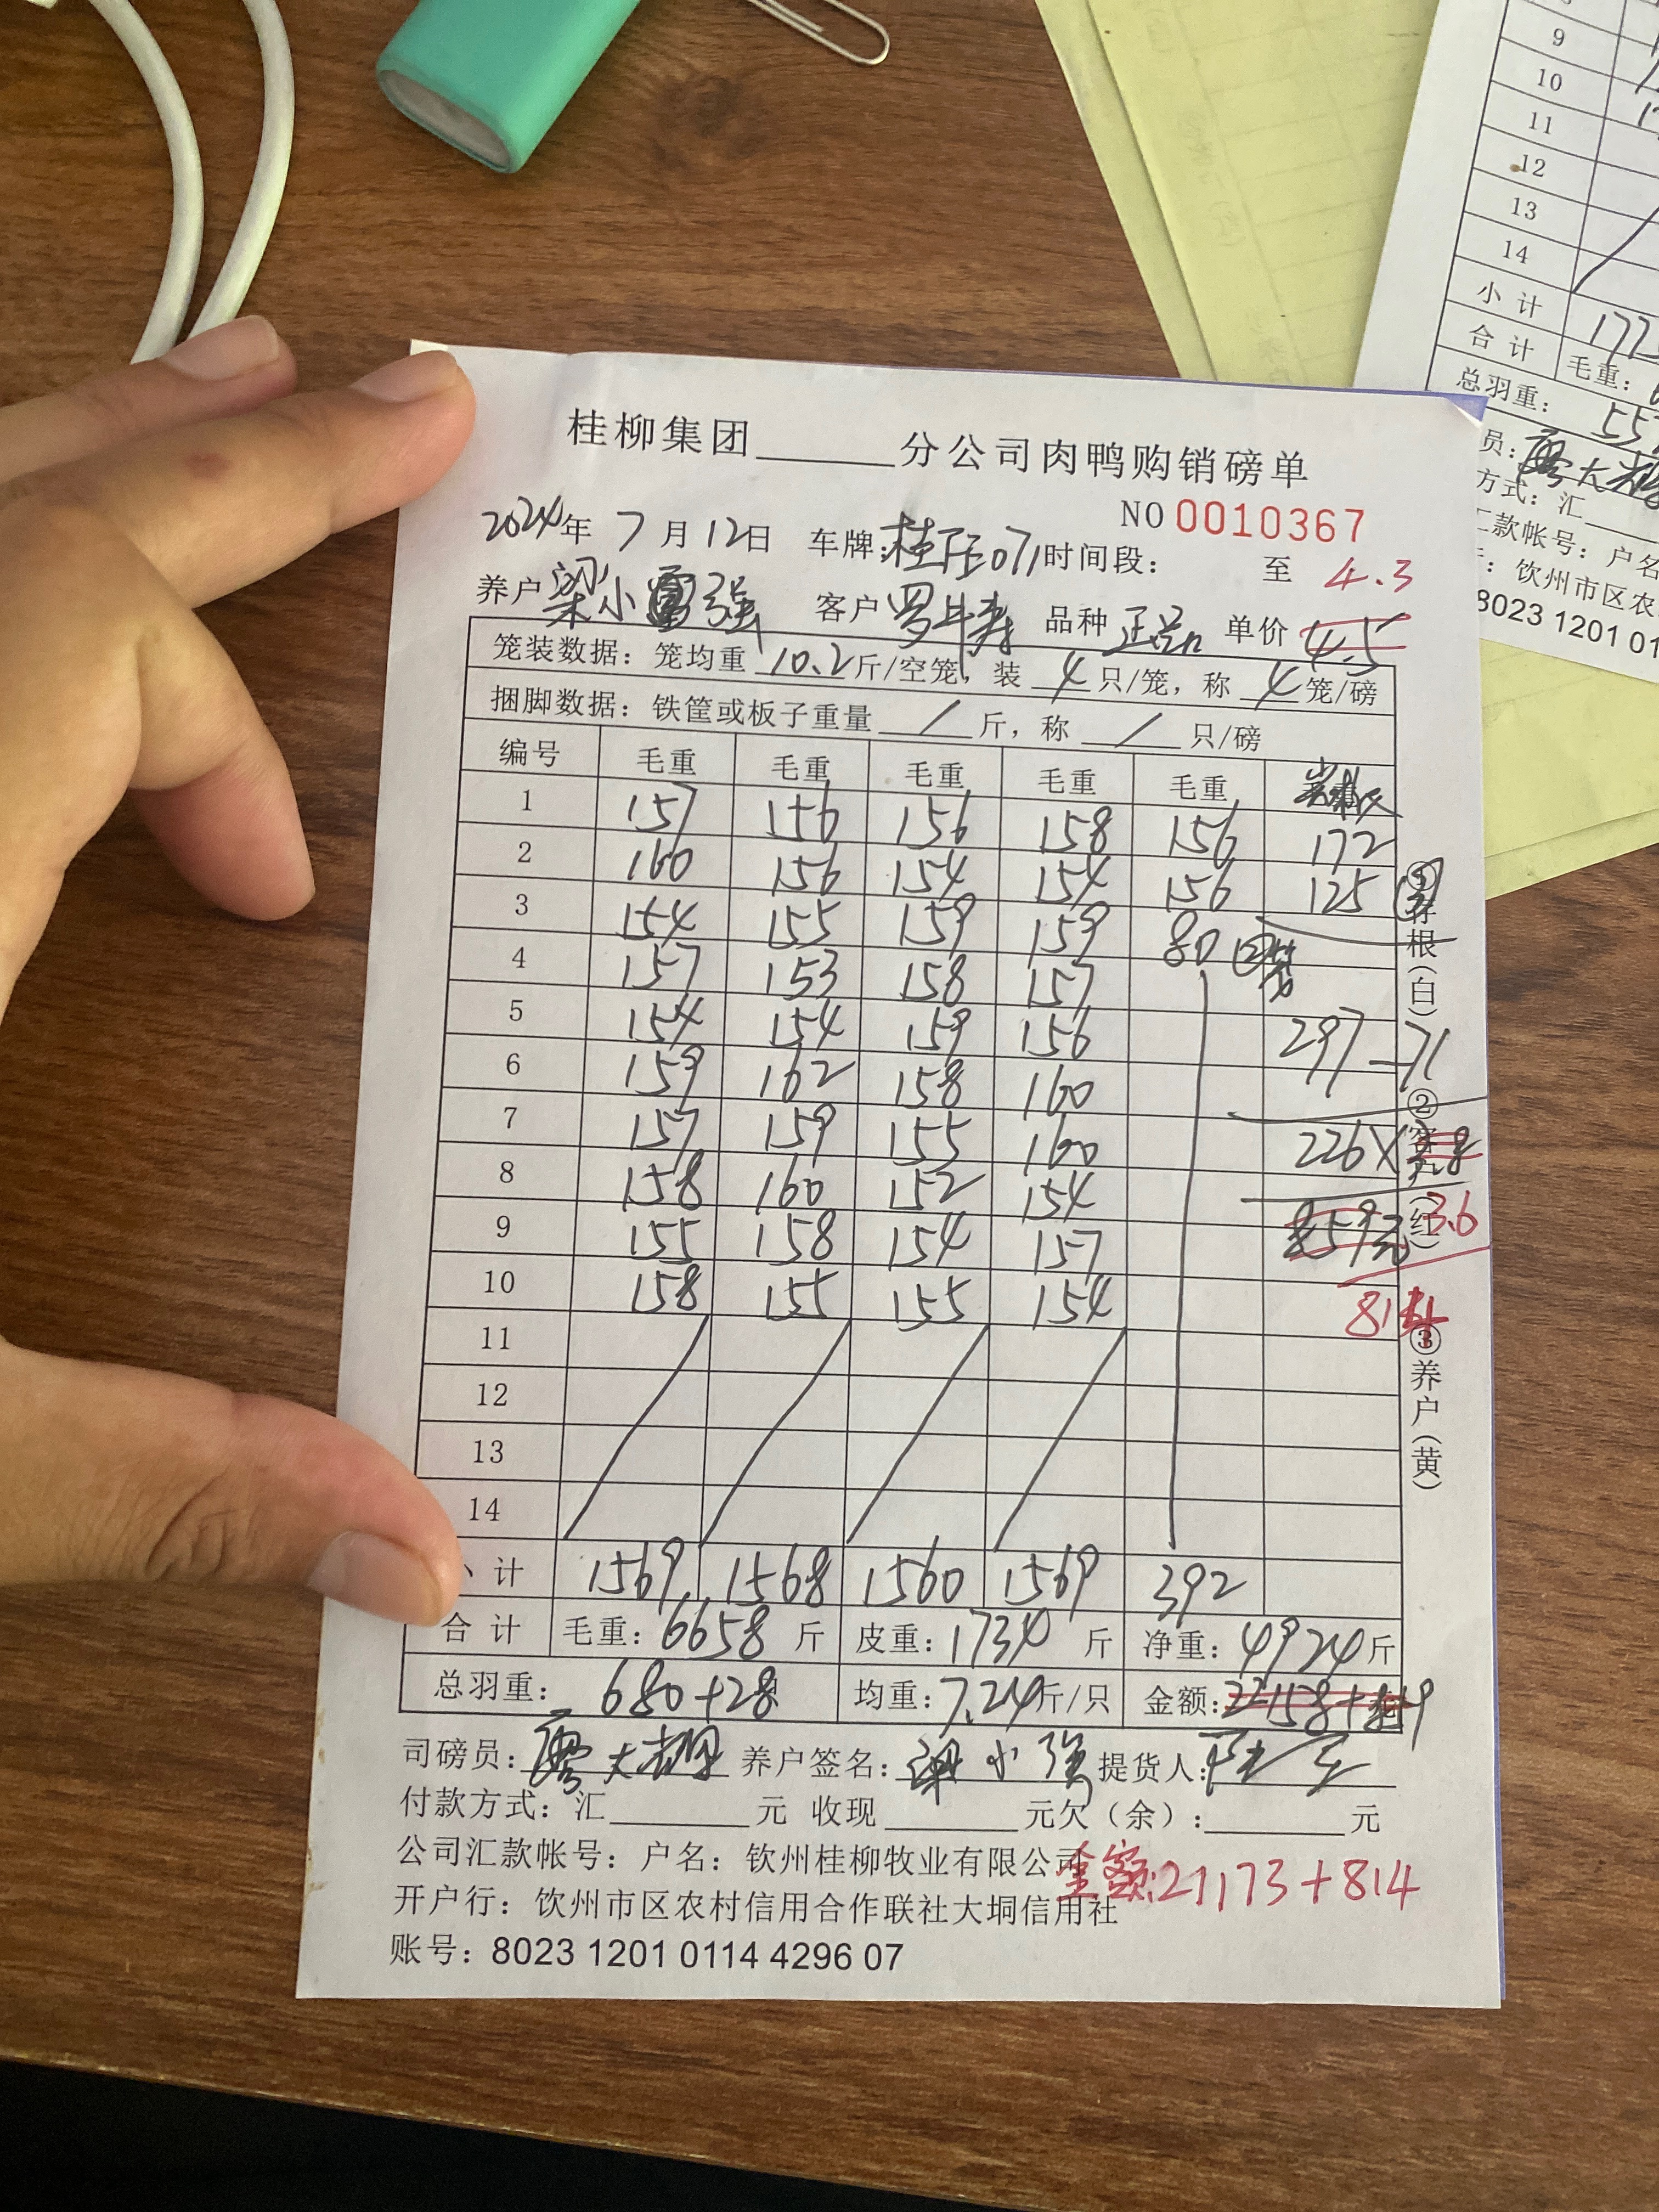 9
10
11
12
13
14
小计
合计 毛重:
总羽重:
员:廖大
方式:汇
汇款帐号:户名
:钦州市区农
8023 1201 01
桂柳集团______分公司肉鸭购销磅单
NO 0010367
2024年 7月12日 车牌: 071 时间段: 至 4.3
养户 梁小强 客户 罗 品种 正品 单价 4.5
笼装数据:笼均重 10.2 斤/空笼,装 4 只/笼,称 4 笼/磅
捆脚数据:铁筐或板子重量 / 斤,称 / 只/磅
编号 毛重 毛重 毛重 毛重 毛重
1 157 156 156 158 156 172
2 160 156 154 154 156 125
3 154 155 159 159 80
4 157 153 158 157
5 154 154 159 156 297-71
6 159 162 158 160
7 157 159 155 160 226×
8 158 160 152 154 3.6
9 155 158 154 157 859元
10 158 155 155 154 814
11
12
13
14
小计 1569 1568 1560 1569 392
合计 毛重:6658斤 皮重:1734斤 净重:4924斤
总羽重: 680+28 均重:7.24斤/只 金额:22158+859
①存根(白) ②客户(红) ③养户(黄)
司磅员: 廖大 养户签名: 梁小强 提货人:
付款方式:汇______元 收现______元欠(余):______元
公司汇款帐号:户名:钦州桂柳牧业有限公司
金额:21173+814
开户行:钦州市区农村信用合作联社大垌信用社
账号:8023 1201 0114 4296 07